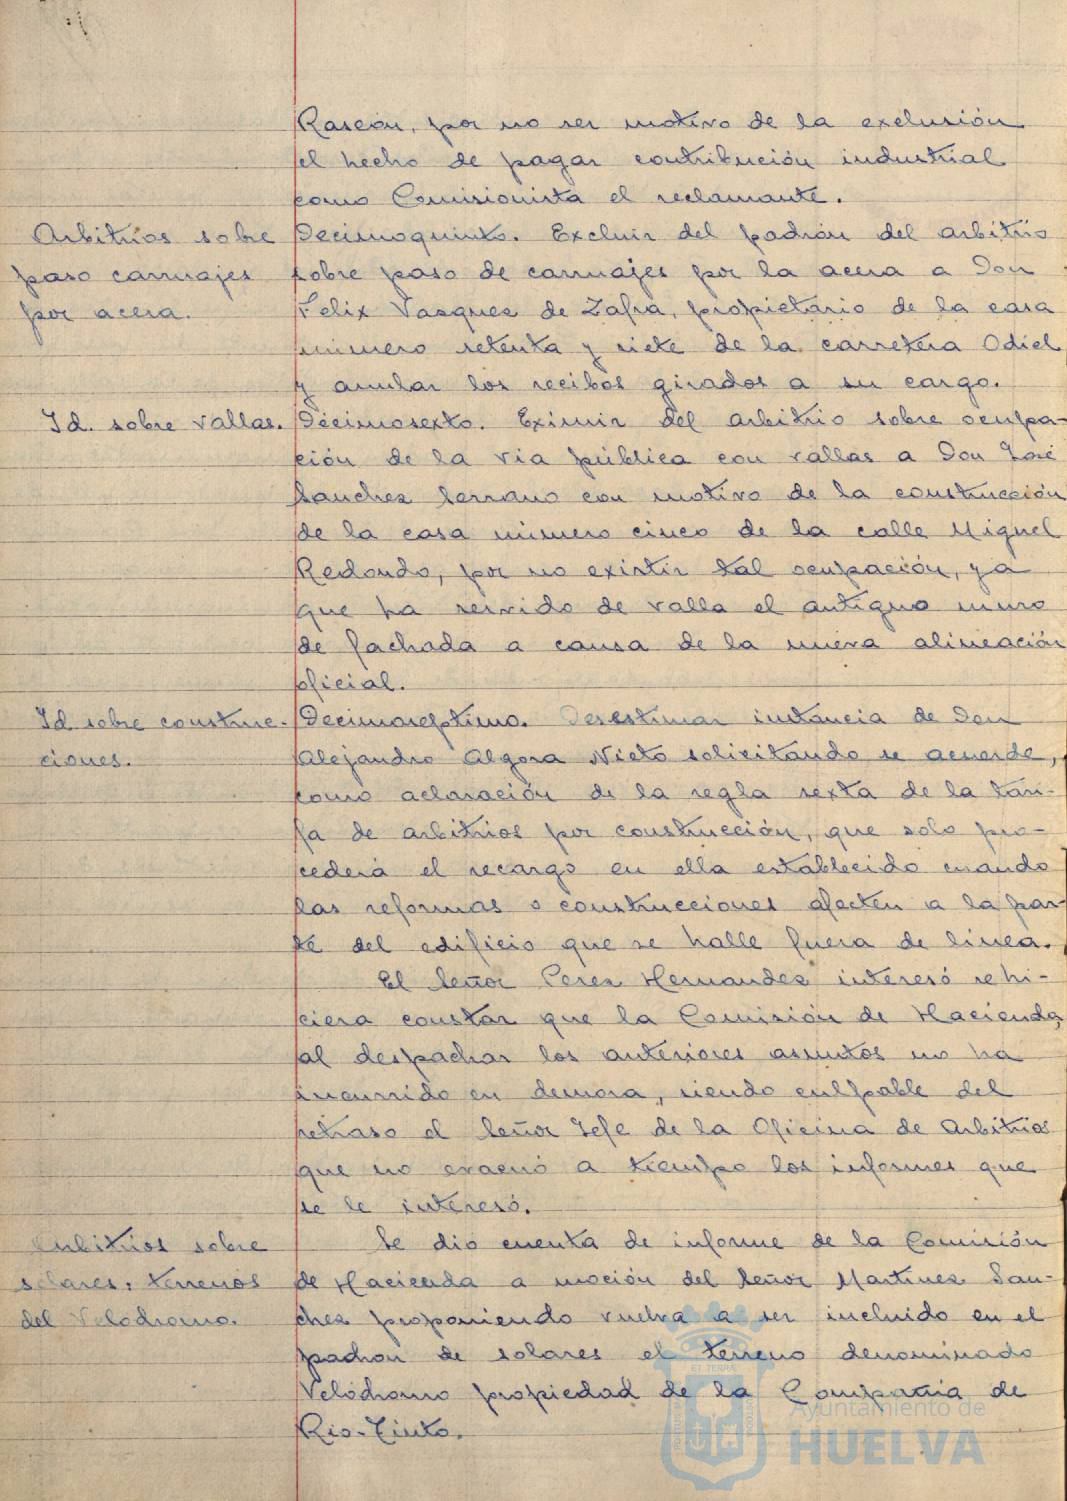 Rascón, por no ser motivo de la exclusión
el hecho de pagar contribución industrial
como Comisionista el reclamante.
Arbitrios sobre
paso carruajes
por acera.
Decimoquinto. Excluir del padrón del arbitrio
sobre paso de carruajes por la acera a Don
Felix Vazquez de Zafra, propietario de la casa
número setenta y siete de la carretera Odiel
y anular los recibos girados a su cargo.
Id. sobre vallas.
Décimosexto. Eximir del arbitrio sobre ocupa-
ción de la via pública con vallas a Don José
Sanchez Serrano con motivo de la construcción
de la casa número cinco de la calle Miguel
Redondo, por no existir tal ocupación, ya
que ha servido de valla el antiguo muro
de fachada a causa de la nueva alineación
oficial.
Id sobre construc-
ciones.
Decimoseptimo. Desestimar instancia de Don
Alejandro Algora Nieto solicitando se acuerde,
como aclaración de la regla sexta de la tari-
fa de arbitrios por construcción, que solo pro-
cederá el recargo en ella establecido cuando
las reformas o construcciones afecten a la par-
te del edificio que se halle fuera de linea.
El Señor Perez Hernandez interesó se hi-
ciera constar que la Comisión de Hacienda,
al despachar los anteriores asuntos no ha
incurrido en demora, siendo culpable del
retraso el Señor Jefe de la Oficina de Arbitrios
que no evacuó a tiempo los informes que
se le interesó.
Arbitrios sobre
solares, terrenos
del Velodromo.
Se dio cuenta de informe de la Comisión
de Hacienda a moción del Señor Martinez San-
chez proponiendo vuelva a ser incluido en el
padron de solares el terreno denominado
Velódromo propiedad de la Compañia de
Rio-Tinto.
Ayuntamiento de
HUELVA